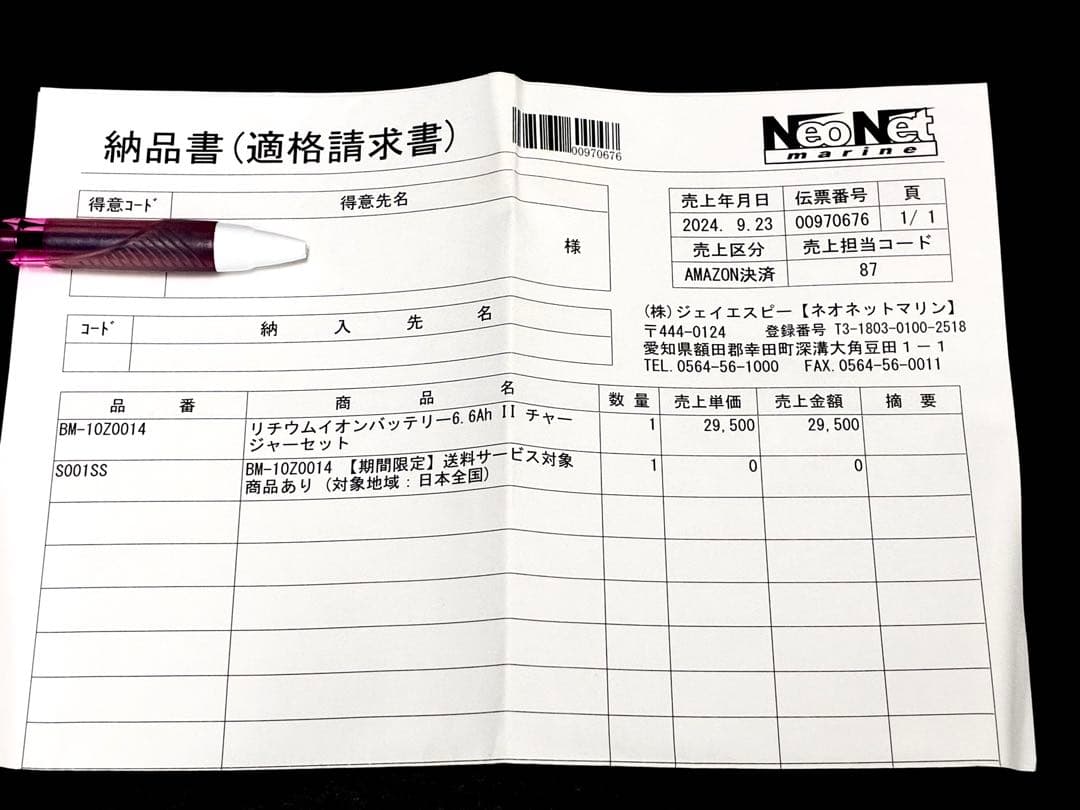 納品書(適格請求書)
00970676
NeoNet
marine
得意コード 得意先名
様
売上年月日 伝票番号 頁
2024. 9.23 00970676 1/ 1
売上区分 売上担当コード
AMAZON決済 87
コード 納入先名
(株)ジェイエスピー【ネオネットマリン】
〒444-0124 登録番号 T3-1803-0100-2518
愛知県額田郡幸田町深溝大角豆田1-1
TEL.0564-56-1000 FAX.0564-56-0011
品番 商品名 数量 売上単価 売上金額 摘要
BM-10Z0014 リチウムイオンバッテリー6.6Ah II チャー 1 29,500 29,500
ジャーセット
S001SS BM-10Z0014 【期間限定】送料サービス対象 1 0 0
商品あり (対象地域:日本全国)